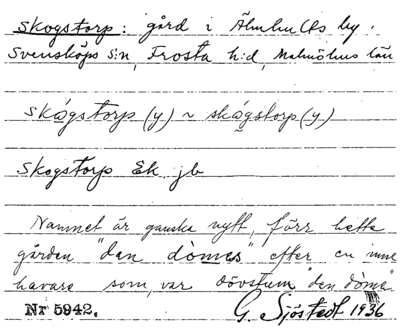 Skogstorp: gård i Älmhults by.
Svensköps s:n, Frosta h:d, Malmöhus län
skógstorp (y) ~ skógstorp (y)
Skogstorp Ek jb
Namnet är ganska nytt, förr hette
gården "den dòmes" efter en inne
havare som var dövstum "den dòme"
Nr 5942. G. Sjöstedt 1936